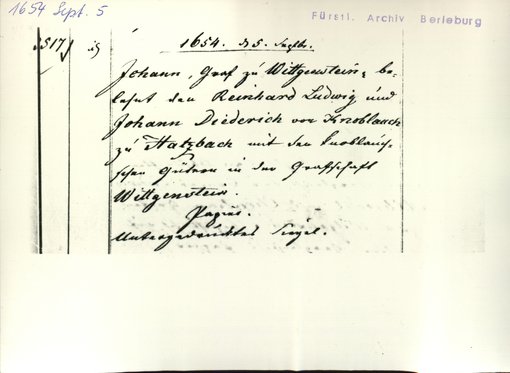 1654 Sept. 5
Fürstl. Archiv Berleburg
1654. d. 5. Septbr.
Johann, Graf zu Wittgenstein, be-
lehnt den Reinhard Ludwig und
Johann Diederich von Knoblauch
zu Hatzbach mit den Knoblauch-
schen Gütern in der Grafschaft
Wittgenstein.
Papier.
Untergedrucktes Siegel.